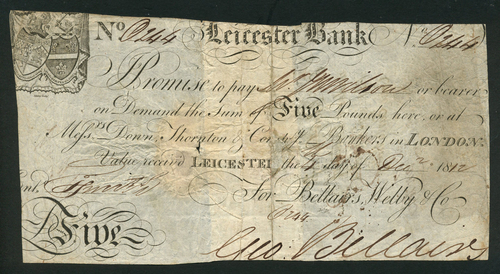 No O244 Leicester Bank No O244
I Promise to pay Mr J Wilson or bearer
on Demand the Sum of Five Pounds here, or at
Messrs Down, Thornton & Co. Bankers in LONDON.
Value receiv'd LEICESTER the day of Decr 1812
Ent.
For Bellairs, Welby & Co
O244
Five
Geo. Bellairs